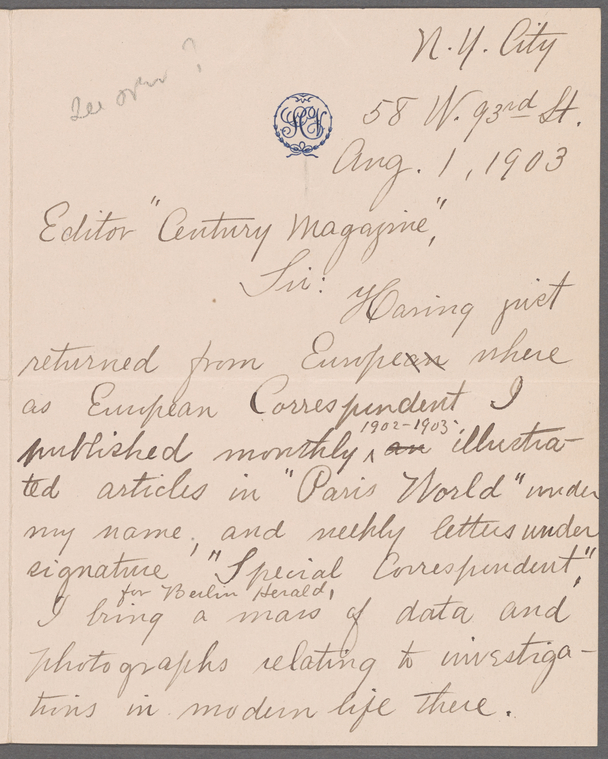 See over?
N.Y. City
58 W. 93rd St.
Aug. 1, 1903
Editor "Century Magazine",
Sir:
Having just
returned from European where
as European Correspondent I
1902-1903
published monthly, an illustra-
ted articles in "Paris World" under
my name, and weekly letters under
signature, "Special Correspondent",
for Berlin Herald,
I bring a mass of data and
photographs relating to investiga-
tions in modern life there.